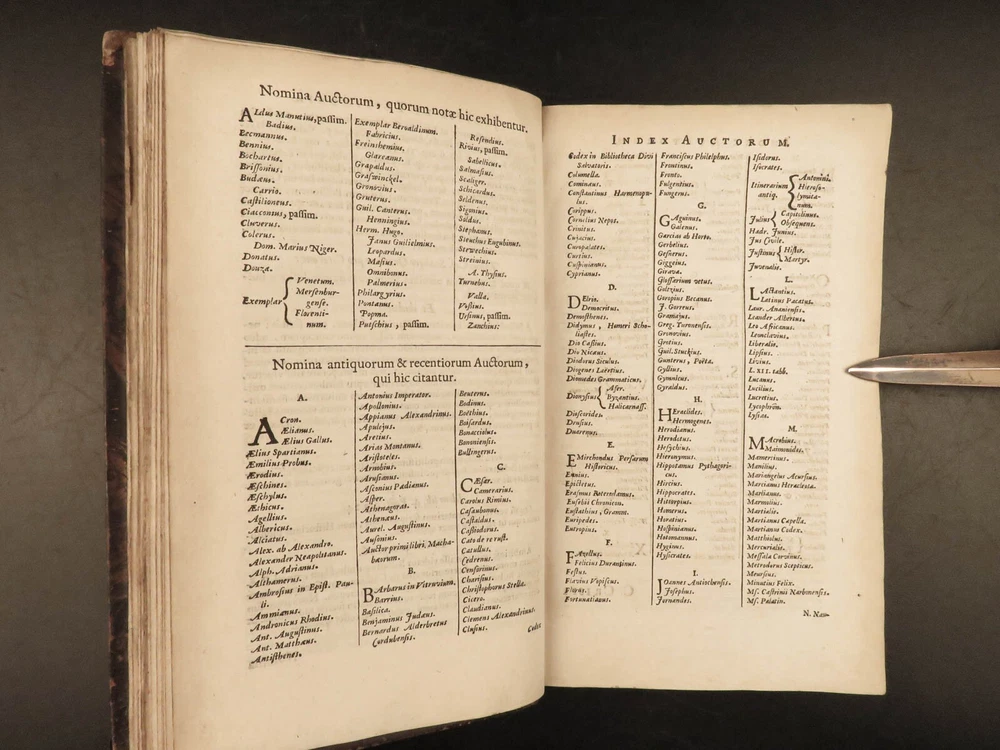 Nomina Auctorum, quorum notæ hic exhibentur.
ALdus Manutius, passim.
Badius.
Becmannus.
Bennius.
Bochartus.
Brissonius.
Budæus.
Carrio.
Castilioneus.
Ciacconius, passim.
Cluverus.
Colerus.
Dom. Marius Niger.
Donatus.
Douza.
Exemplar
Venetum.
Mersenbur-
gense.
Florenti-
num.
Exemplar Beroaldinum.
Fabricius.
Freinshemius.
Glareanus.
Grapaldus.
Graswinckel.
Gronovius.
Gruterus.
Guil. Canterus.
Henningius.
Herm. Hugo.
Janus Guilielmius.
Leopardus.
Masius.
Omnibonus.
Palmerius.
Philargyrius.
Pontanus.
Popma.
Putschius, passim.
Resendius.
Rivius, passim.
Sabellicus.
Salmasius.
Scaliger.
Schicardus.
Seldenus.
Sigonius.
Soldus.
Stephanus.
Steuchus Eugubinus.
Stewechius.
Streinius.
A. Thysius.
Turnebus.
Valla.
Vossius.
Ursinus, passim.
Zanchius.
Nomina antiquorum & recentiorum Auctorum,
qui hic citantur.
A.
ACron.
Ælianus.
Ælius Gallus.
Ælius Spartianus.
Æmilius Probus.
Ærodius.
Æschines.
Æschylus.
Æthicus.
Agellius.
Albericus.
Alciatus.
Alex. ab Alexandro.
Alexander Neapolitanus.
Alph. Adrianus.
Althamerus.
Ambrosius in Epist. Pau-
li.
Ammianus.
Andronicus Rhodius.
Ant. Augustinus.
Ant. Matthæus.
Antisthenes.
Antonius Imperator.
Apollonius.
Appianus Alexandrinus.
Apulejus.
Aretius.
Arias Montanus.
Aristoteles.
Arnobius.
Arusianus.
Asconius Pædianus.
Asper.
Athenagoras.
Athenæus.
Aurel. Augustinus.
Ausonius.
Auctor primi libri. Macha-
bæorum.
B.
BArbarus in Vitruvium.
Barrius.
Basilica.
Benjaminus Judæus.
Bernardus Alderbretus
Cordubensis.
Beuterus.
Bodinus.
Boëthius.
Boisardus.
Bonacciolus.
Bononiensis.
Bullingerus.
C.
CÆsar.
Camerarius.
Carolus Rimius.
Casaubonus.
Castaldus.
Cassiodorus.
Cato de re rust.
Catullus.
Cedrenus.
Censorinus.
Charisius.
Christophorus Stella.
Cicero.
Claudianus.
Clemens Alexandrinus.
Clusius.
Codex
INDEX AUCTORUM.
Codex in Bibliotheca Divi
Salvatoris.
Columella.
Cominæus.
Constantinus Harmenopu-
lus.
Corippus.
Cornelius Nepos.
Crinitus.
Cujacius.
Curopalates.
Curtius.
Cuspinianus.
Cyprianus.
D.
DElrio.
Democritus.
Demosthenes.
Didymus, Homeri Scho-
liastes.
Dio Cassius.
Dio Nicæus.
Diodorus Siculus.
Diogenes Laertius.
Diomedes Grammaticus.
Dionysius
Afer.
Byzantius.
Halicarnass.
Dioscorides.
Drusius.
Duarenus.
E.
EMirchondus Persarum
Historicus.
Ennius.
Epictetus.
Erasmus Roterodamus.
Eusebii Chronicon.
Eustathius, Gramm.
Euripedes.
Eutropius.
F.
FAzellus.
Felicius Durantinus.
Festus.
Flavius Vopiscus.
Florus.
Fortunatianus.
Franciscus Philelphus.
Frontinus.
Fronto.
Fulgentius.
Fungerus.
G.
GAguinus.
Galenus.
Garcias ab Horto.
Gerbelius.
Gesnerus.
Giggeius.
Girava.
Glossarium vetus.
Goltzius.
Goropius Becanus.
J. Gorreus.
Gramajus.
Greg. Turonensis.
Gronovius.
Grotius.
Guil. Stuckius.
Gunterus, Poëta.
Gyllius.
Gymnicus.
Gyraldus.
H.
HEraclides.
Hermogenes.
Herodianus.
Herodotus.
Hesychius.
Hieronymus.
Hippotamus Pythagori-
cus.
Hirtius.
Hippocrates.
Histæopius.
Homerus.
Horatius.
Hospinianus.
Hotomannus.
Hyginus.
Hysicrates.
I.
JOannes Antiochensis.
Josephus.
Jornandes.
Isidorus.
Isocrates.
Itinerarium
antiq.
Antonini.
Hieroso-
lymita-
num.
Julius
Capitolinus.
Obsequens.
Hadr. Junius.
Jus Civile.
Justinus
Histor.
Martyr.
Juvenalis.
L.
LActantius.
Latinus Pacatus.
Laur. Ananiensis.
Leander Albertus.
Leo Africanus.
Leonclavius.
Liberalis.
Lipsius.
Livius.
L. XII. tabb.
Lucanus.
Lucilius.
Lucretius.
Lycophron.
Lysias.
M.
MAcrobius.
Maimonides.
Mamertinus.
Manilius.
Mariangelus Acursius.
Marcianus Heracleota.
Marlianus.
Marmolius.
Martialis.
Martianus Capella.
Martianus Codex.
Matthiolus.
Mercurialis.
Messala Corvinus.
Metrodorus Scepticus.
Meursius.
Minutius Felix.
Ms. Castrinii Narbonensis.
Ms. Palatin.
N. Nau-